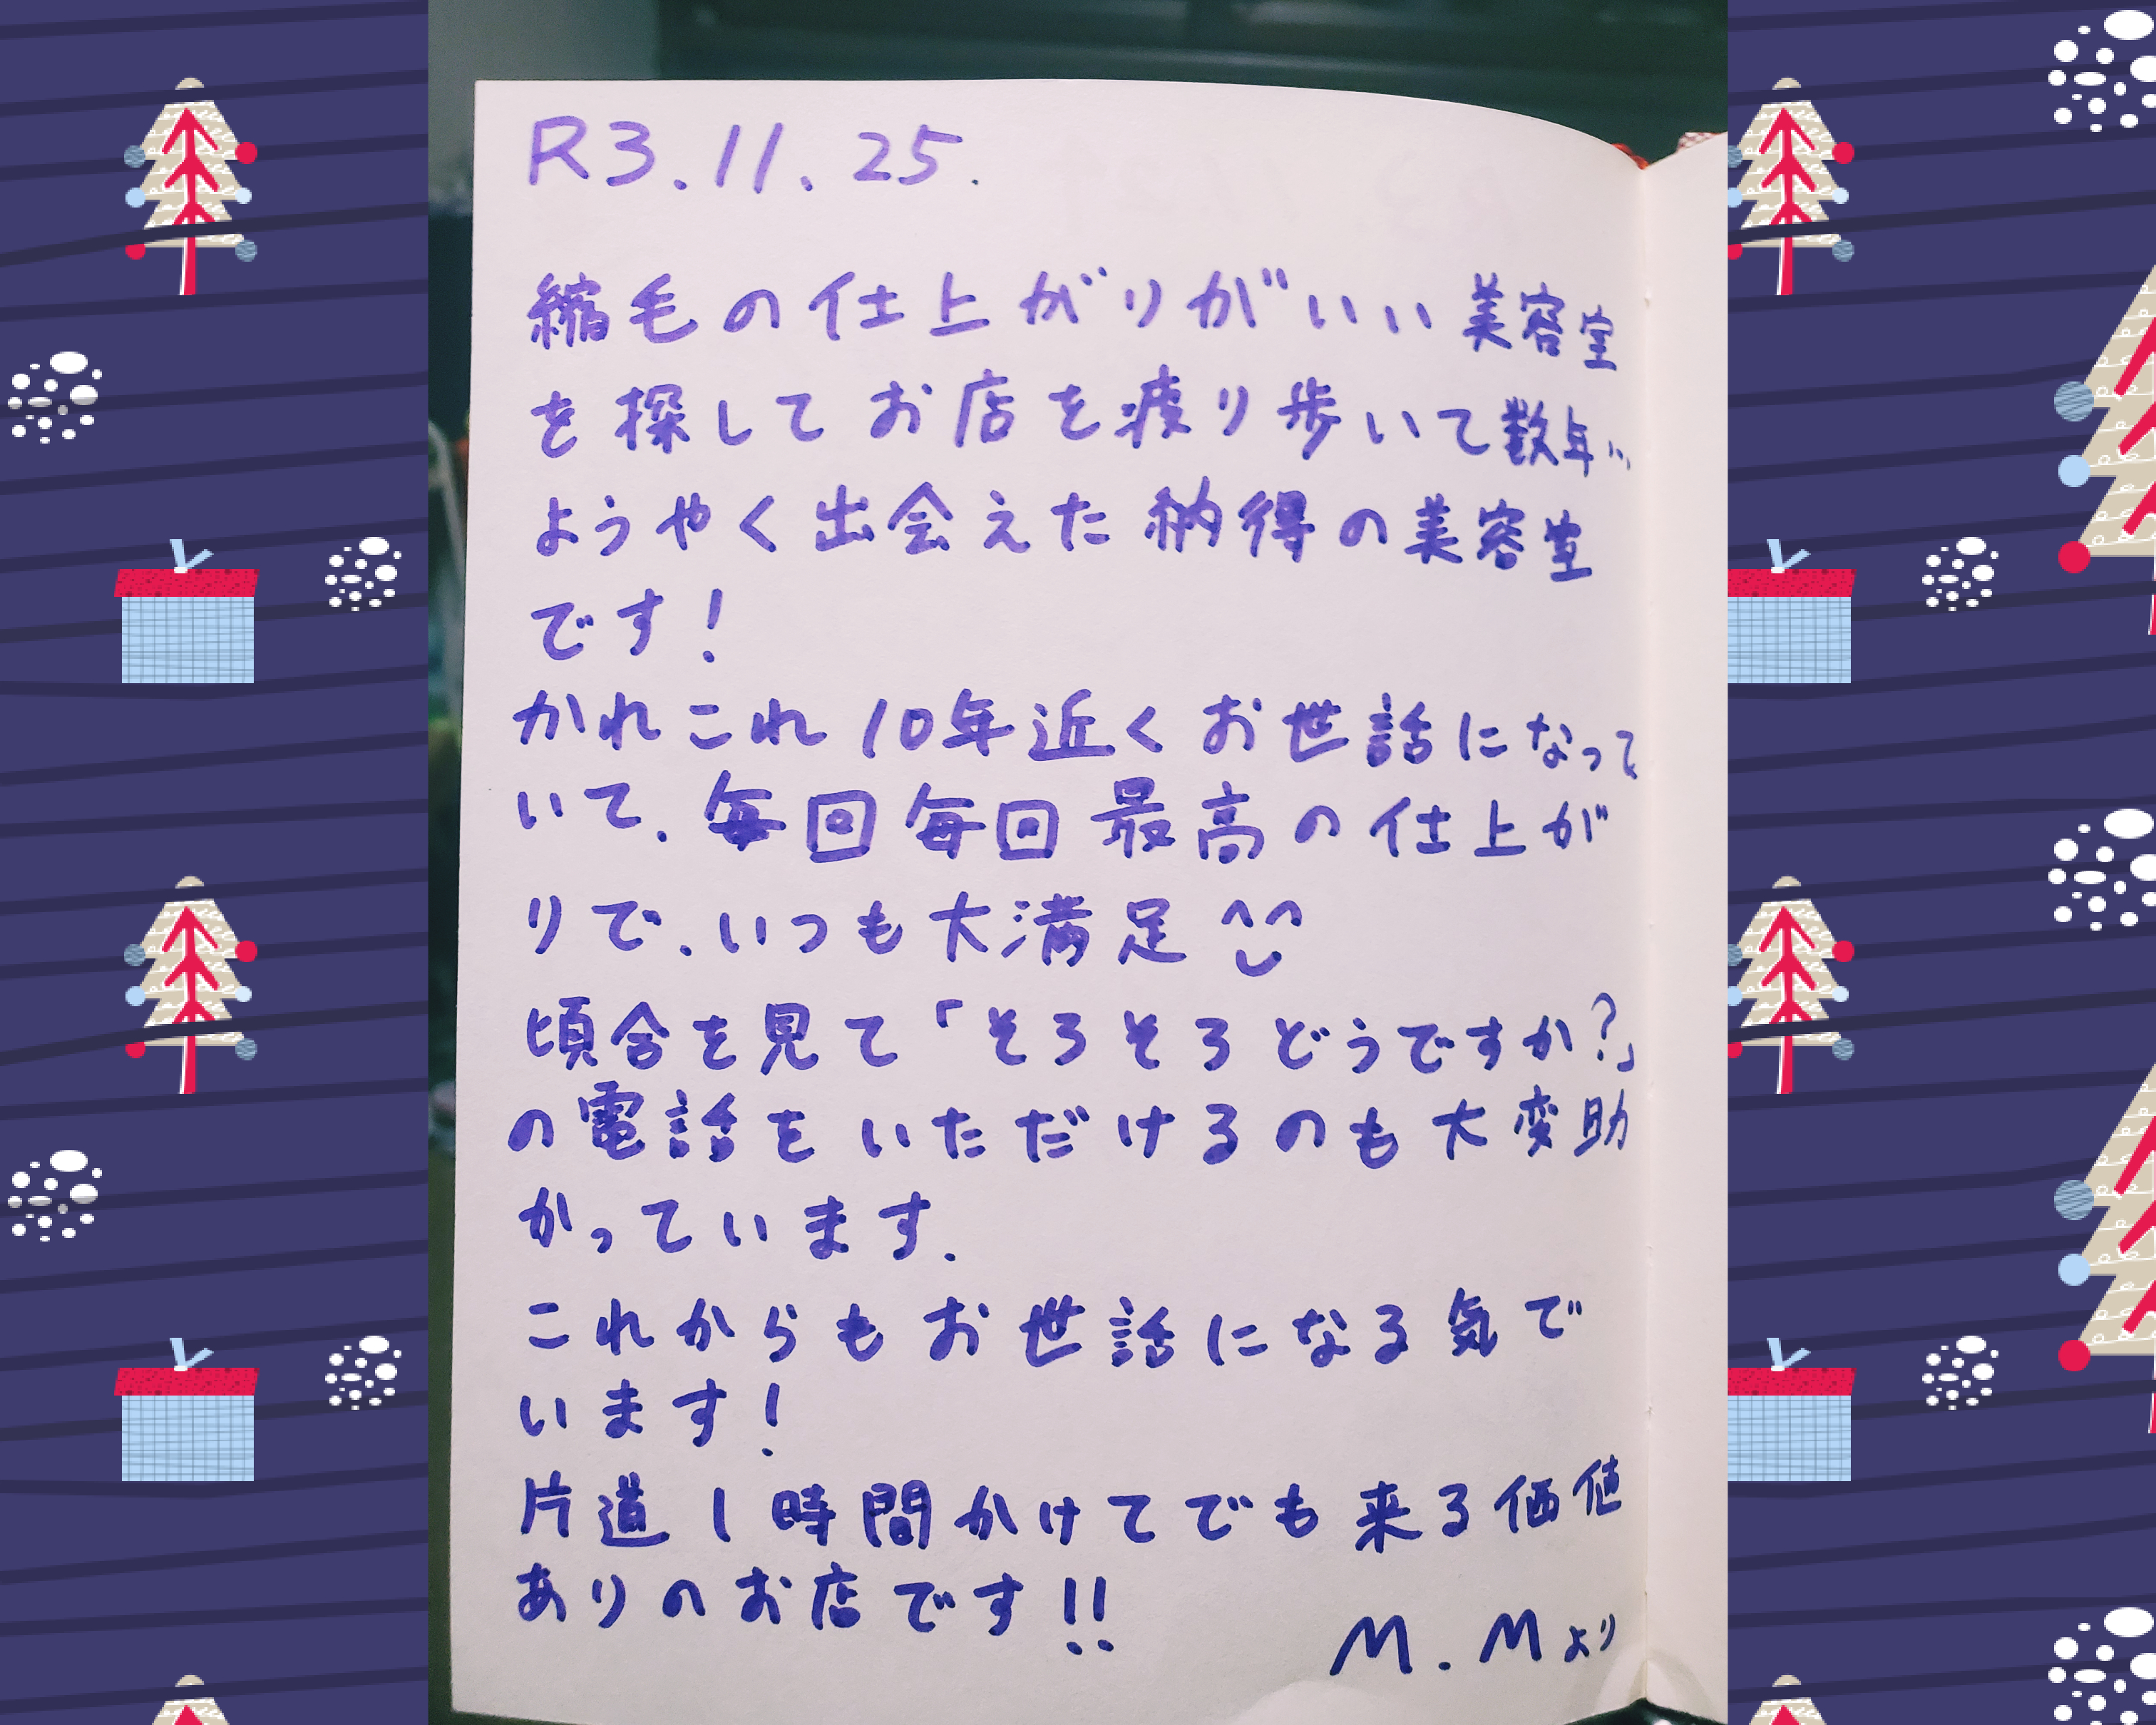 R3.11.25.
縮毛の仕上がりがいい美容室
を探してお店を渡り歩いて数年…
ようやく出会えた納得の美容室
です!
かれこれ10年近くお世話になって
いて、毎回毎回最高の仕上が
りで、いつも大満足^^
頃合を見て「そろそろどうですか?」
の電話をいただけるのも大変助
かっています。
これからもお世話になる気で
います!
片道1時間かけてでも来る価値
ありのお店です!!
M.Mより